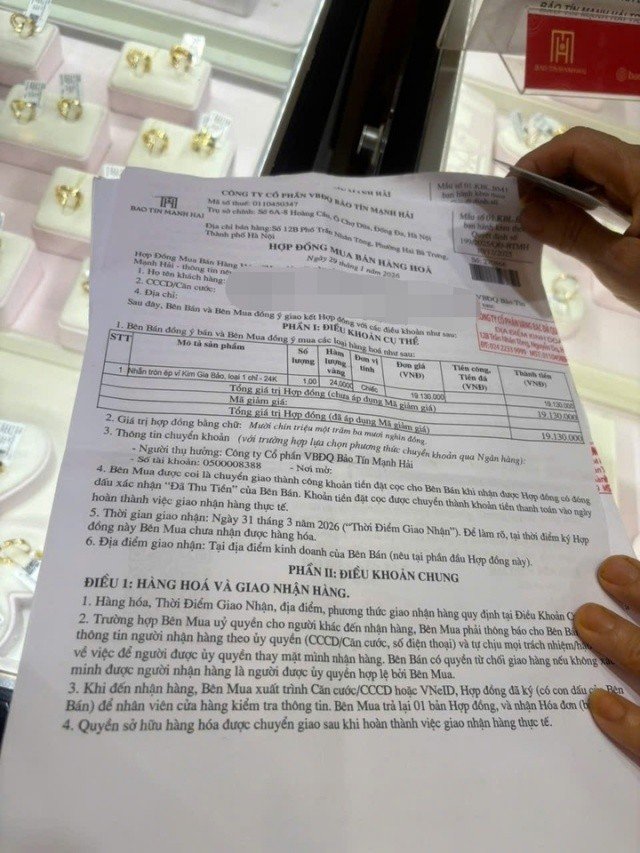 BẢO TÍN MẠNH HẢI
BAO TIN MANH HAI
MẠNH HẢI
CÔNG TY CỔ PHẦN VBĐQ BẢO TÍN MẠNH HẢI
Mã số thuế: 0110450347
Trụ sở chính: Số 6A-8 Hoàng Cầu, Ô Chợ Dừa, Đống Đa, Hà Nội
Địa chỉ bán hàng: Số 12B Phố Trần Nhân Tông, Phường Hai Bà Trưng,
Thành phố Hà Nội
BAO TIN MANH HAI
HỢP ĐỒNG MUA BÁN HÀNG HOÁ
Ngày 29 tháng 1 năm 2026
Hợp Đồng Mua Bán Hàng
Mạnh Hải - thông tin
1. Họ tên khách hàng:
2. CCCD/Căn cước:
4. Địa chỉ:
VBĐQ Bảo Tín
Sau đây, Bên Bán và Bên Mua đồng ý giao kết Hợp đồng với các điều khoản như sau:
PHẦN I: ĐIỀU KHOẢN CỤ THỂ
1. Bên Bán đồng ý bán và Bên Mua đồng ý mua các loại hàng hoá như sau:
STT Mô tả sản phẩm Số lượng Hàm lượng vàng Đơn vị tính Đơn giá (VNĐ) Tiền công, Tiền đá (VNĐ) Thành tiền (VNĐ)
1 Nhẫn tròn ép vỉ Kim Gia Bảo, loại 1 chỉ - 24K 1,00 24,0000 Chiếc 19.130.000 19.130.000
Tổng giá trị Hợp đồng (chưa áp dụng Mã giảm giá) 19.130.000
Mã giảm giá:
Tổng giá trị Hợp đồng (đã áp dụng Mã giảm giá) 19.130.000
2. Giá trị hợp đồng bằng chữ: Mười chín triệu một trăm ba mươi nghìn đồng.
3. Thông tin chuyển khoản (với trường hợp lựa chọn phương thức chuyển khoản qua Ngân hàng):
- Người thụ hưởng: Công ty Cổ phần VBĐQ Bảo Tín Mạnh Hải
- Số tài khoản: 0500008388 - Nơi mở:
4. Bên Mua được coi là chuyển giao thành công khoản tiền đặt cọc cho Bên Bán khi nhận được Hợp đồng có đóng
dấu xác nhận “Đã Thu Tiền” của Bên Bán. Khoản tiền đặt cọc được chuyển thành khoản tiền thanh toán vào ngày
hoàn thành việc giao nhận hàng thực tế.
5. Thời gian giao nhận: Ngày 31 tháng 3 năm 2026 (“Thời Điểm Giao Nhận”). Để làm rõ, tại thời điểm ký Hợp
đồng này Bên Mua chưa nhận được hàng hóa.
6. Địa điểm giao nhận: Tại địa điểm kinh doanh của Bên Bán (nêu tại phần đầu Hợp đồng này).
PHẦN II: ĐIỀU KHOẢN CHUNG
ĐIỀU 1: HÀNG HOÁ VÀ GIAO NHẬN HÀNG.
1. Hàng hóa, Thời Điểm Giao Nhận, địa điểm, phương thức giao nhận hàng quy định tại Điều Khoản C
2. Trường hợp Bên Mua uỷ quyền cho người khác đến nhận hàng, Bên Mua phải thông báo cho Bên Bán
thông tin người nhận hàng theo ủy quyền (CCCD/Căn cước, số điện thoại) và tự chịu mọi trách nhiệm
về việc để người được ủy quyền thay mặt mình nhận hàng. Bên Bán có quyền từ chối giao hàng nếu không xác
minh được người nhận hàng là người được ủy quyền hợp lệ bởi Bên Mua.
3. Khi đến nhận hàng, Bên Mua xuất trình Căn cước/CCCD hoặc VNeID, Hợp đồng đã ký (có con dấu của Bên
Bán) để nhân viên cửa hàng kiểm tra thông tin. Bên Mua trả lại 01 bản Hợp đồng, và nhận Hóa đơn
4. Quyền sở hữu hàng hóa được chuyển giao sau khi hoàn thành việc giao nhận hàng thực tế.